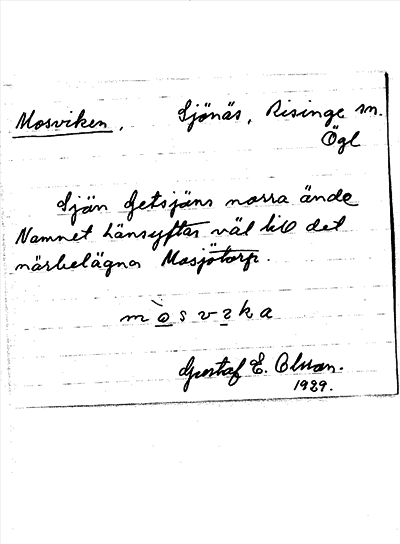 Mosviken, Sjönäs, Risinge sn.
Ögl
Sjön Getsjöns norra ände
Namnet hänsyftar väl till det
närbelägna Mosjötorp.
mo̲̊̀sve̲ka
Gustaf E. Olsson.
1929.